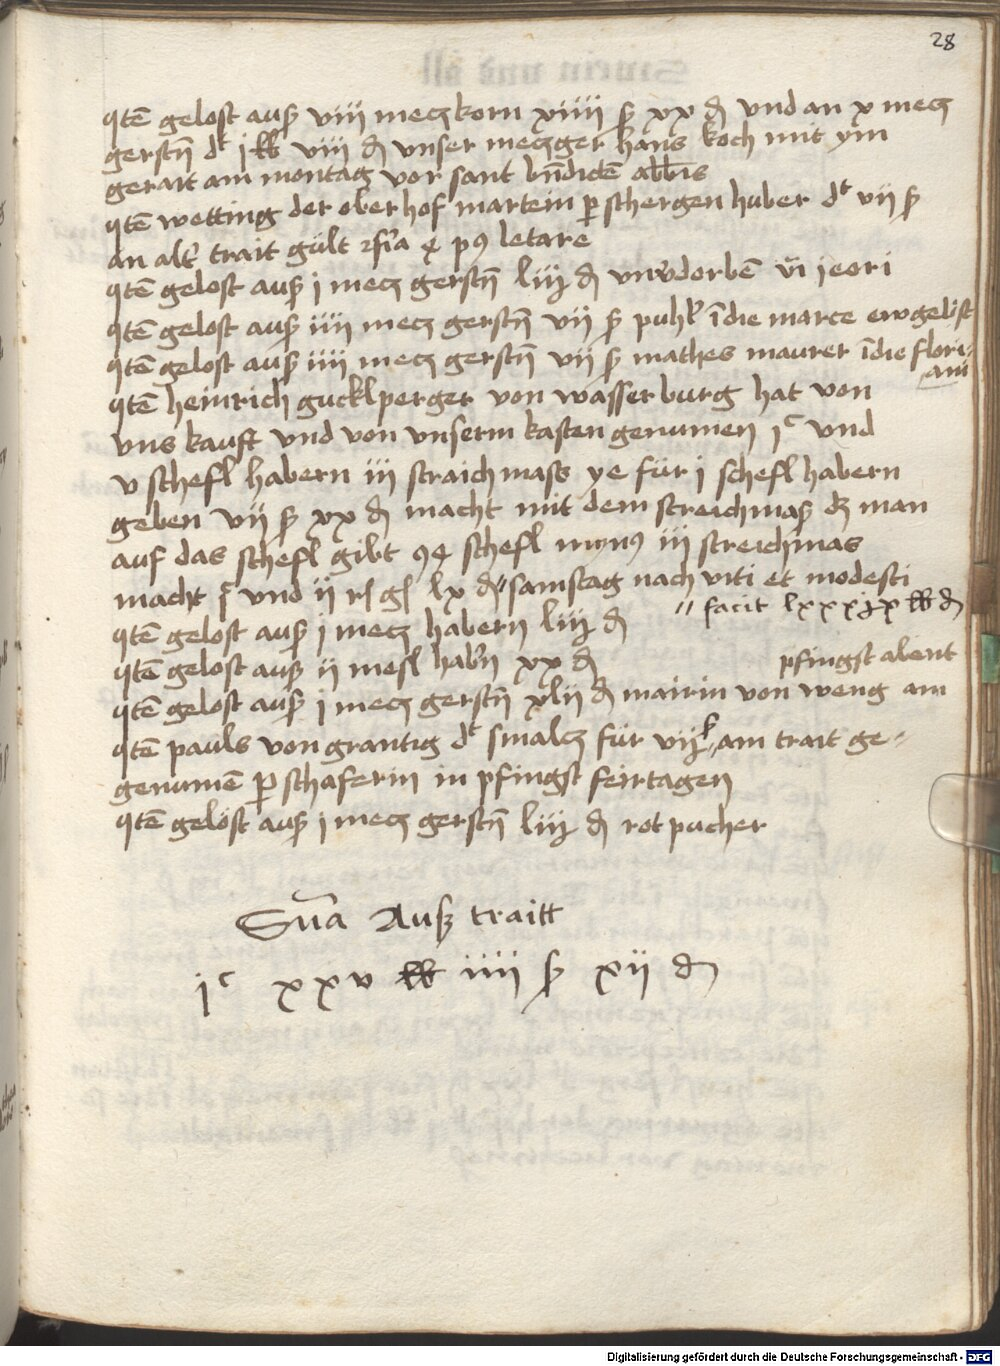 28
Itē gelost auß viii mecz korn xiiii ß xx đ vnd an x mecz
gerstñ dt j lb viii đ vnser meczger hans koch mit ym
gerait am montag vor sant bñdictē abbis
Itē wetting der oberhof martein p schergen huber dt vii ß
an alt trait gült p9 letare
Itē gelost auß j mecz gerstñ đ jeori
Itē gelost auß iiii mecz gerstñ vij ß ī die marce ewgelist
Itē gelost auß iiii mecz gerstñ vij ß mathes maurer ī die flori
am
Itē heinrich gucklperger von wasserburg hat von
vns kauft vnd von vnserm kasten genumen jc vnd
v schefl habern iii straichmass ye für j schefl habern
geben vij ß xx đ macht mit dem streichmaß dz man
auf das schefl gibt schefl min9 iij streichmas
macht vnd ij lx đ samstag nach viti et modesti
facit lb đ
Itē gelost auß j mecz habern liij đ
Itē gelost auß ii mesl habn xx đ pfingst abent
Itē gelost auß j mecz gerstñ xlij đ mairin von weng am
Itē pauls von grantig dt smalcz für am trait ge
genumē p schaferin in pfingst feirtagen
Itē gelost auß j mecz gerstñ liij đ rotpucher
Suma Auß traitt
jc xxv lb iiii ß xij đ
Digitalisierung gefördert durch die Deutsche Forschungsgemeinschaft - DFG